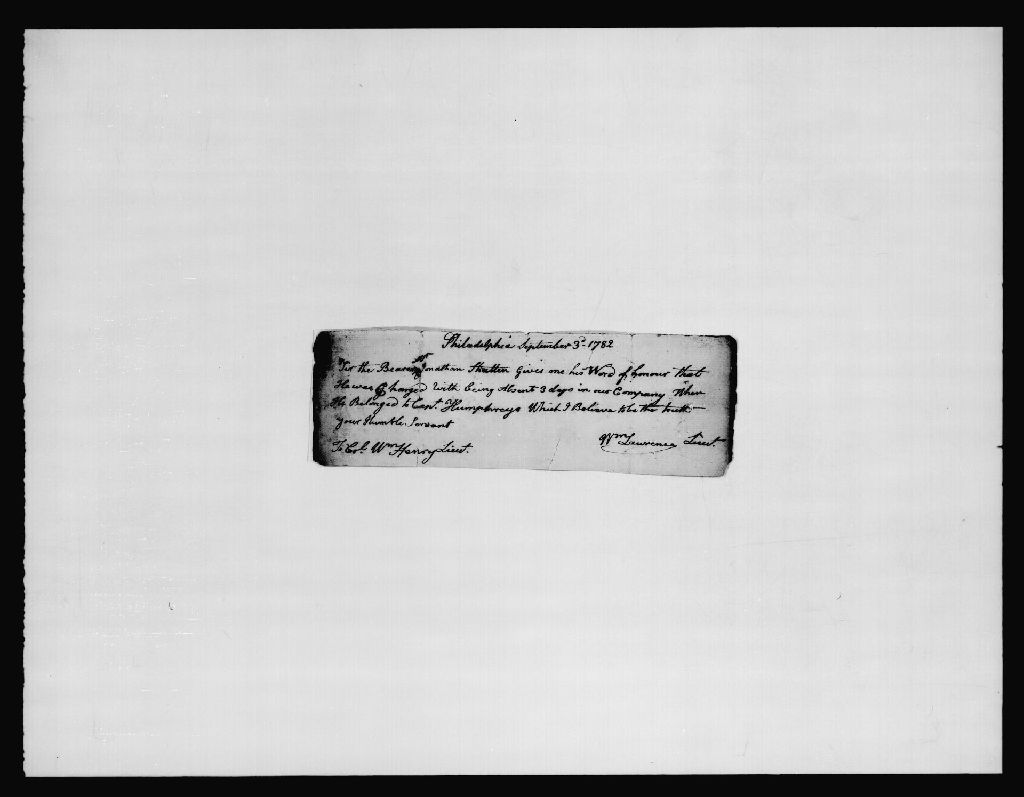 Philadelphia September 3d 1782
Sir the Bearer Mr Jonathan Stratten Gives me his Word of honour that
He was Charged With being Absent 3 days in our Company When
He Belonged to Capt. Humphreys Which I Believe to be the truth —
your Humble Servant
Wm Lawrence Lieut.
To Col. Wm Henry Lieut.